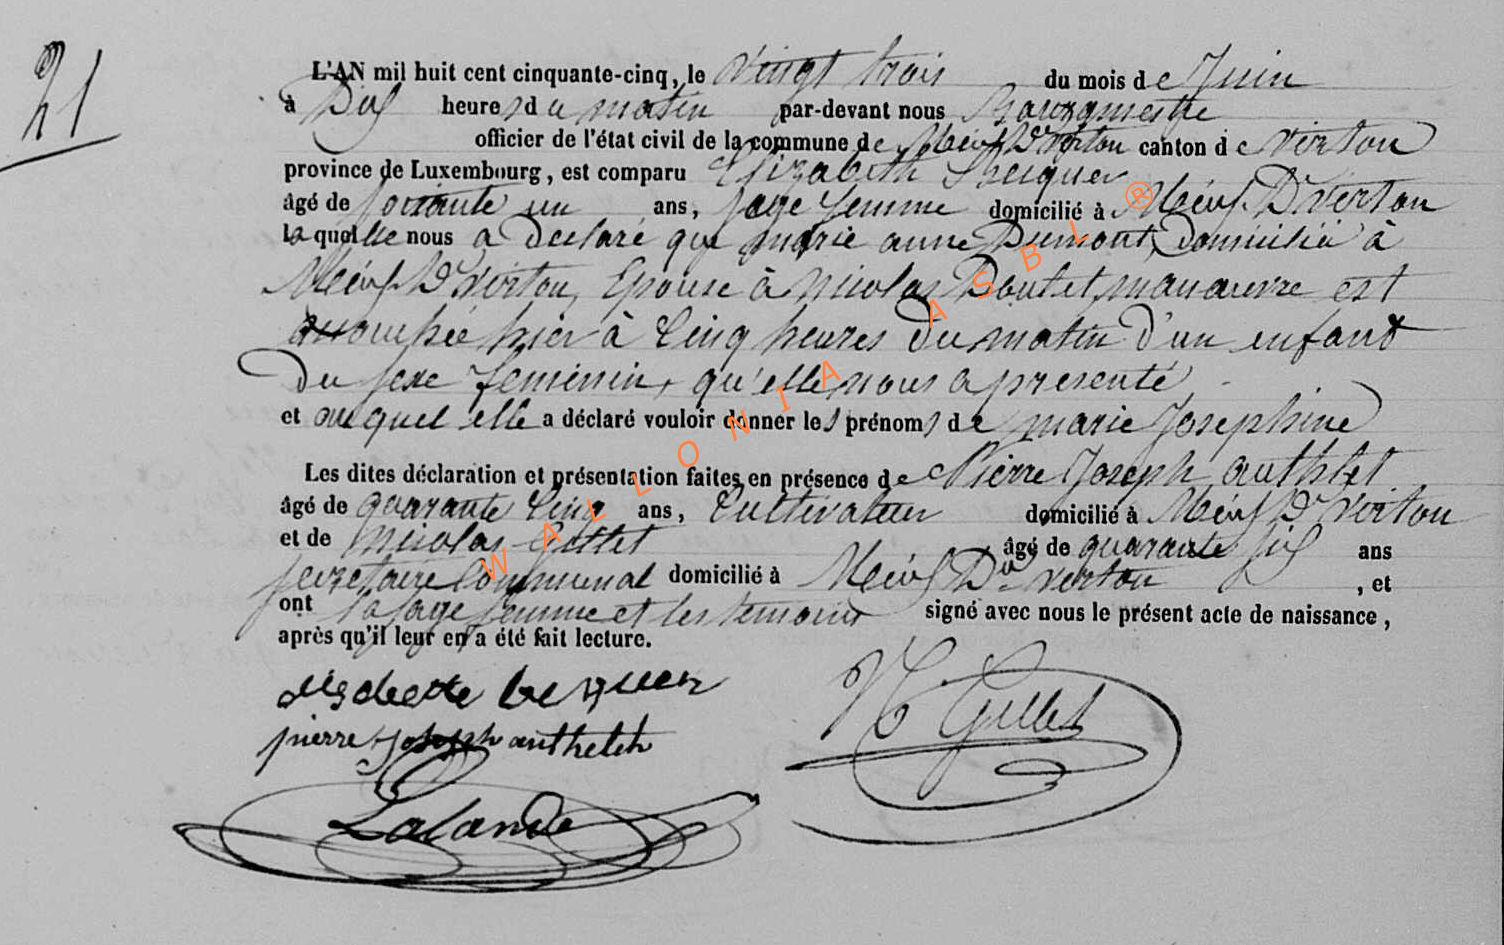 21
L'AN mil huit cent cinquante-cinq, le vingt trois du mois de Juin
à Dix heures du matin par-devant nous Bourgmestre
officier de l'état civil de la commune de Meix Dt Virton canton de virton
province de Luxembourg, est comparu Elizabeth
âgé de soixante un ans, sage femme domicilié à Meix Dt Virton
laquelle nous a declaré que marie anne Dumont, Domicilié à
Meix Dt Virton, Epouse à Nicolas Doutet, manœuvre est
accouchée hier à Cinq heures Du matin d'un enfant
du sexe feminin, qu'elle nous a presenté
et auquel elle a déclaré vouloir donner les prénoms de marie Josephine
Les dites déclaration et présentation faites en présence de Pierre Joseph authlet
âgé de quarante Cinq ans, Cultivateur domicilié à Meix Dt Virton
et de Nicolas Gillet âgé de quarante six ans
secretaire Communal domicilié à Meix Dt virton, et
ont la sage femme et les temoins signé avec nous le présent acte de naissance,
après qu'il leur en a été fait lecture.
N Gillet
pierre joseph anthelet
Lalande
WALLONIA ASBL ®